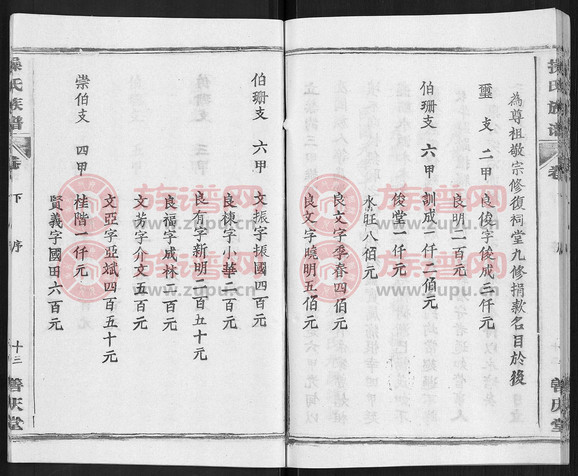 為尊祖敬宗修復祠堂九修捐款名目於後
璽支 二甲 良俊字俊成三仟元
良明二百元
伯珊支 六甲 訓成一仟二佰元
俊堂一仟元
水旺八佰元
良文字季春四佰元
良文字曉明五佰元
伯珊支 六甲 文振字振國四百元
良棟字小華二百元
良有字新明二百五十元
良福字成林二百元
文芳字介文五百元
文亞字亞斌四百五十元
崇伯支 四甲 桂階一仟元
賢義字國田六百元
操氏族譜
卷
下序
十三
善庆堂
族谱网
www.zupu.cn
族谱网
www.zupu.cn
族谱网
www.zupu.cn
族谱网
www.zupu.cn